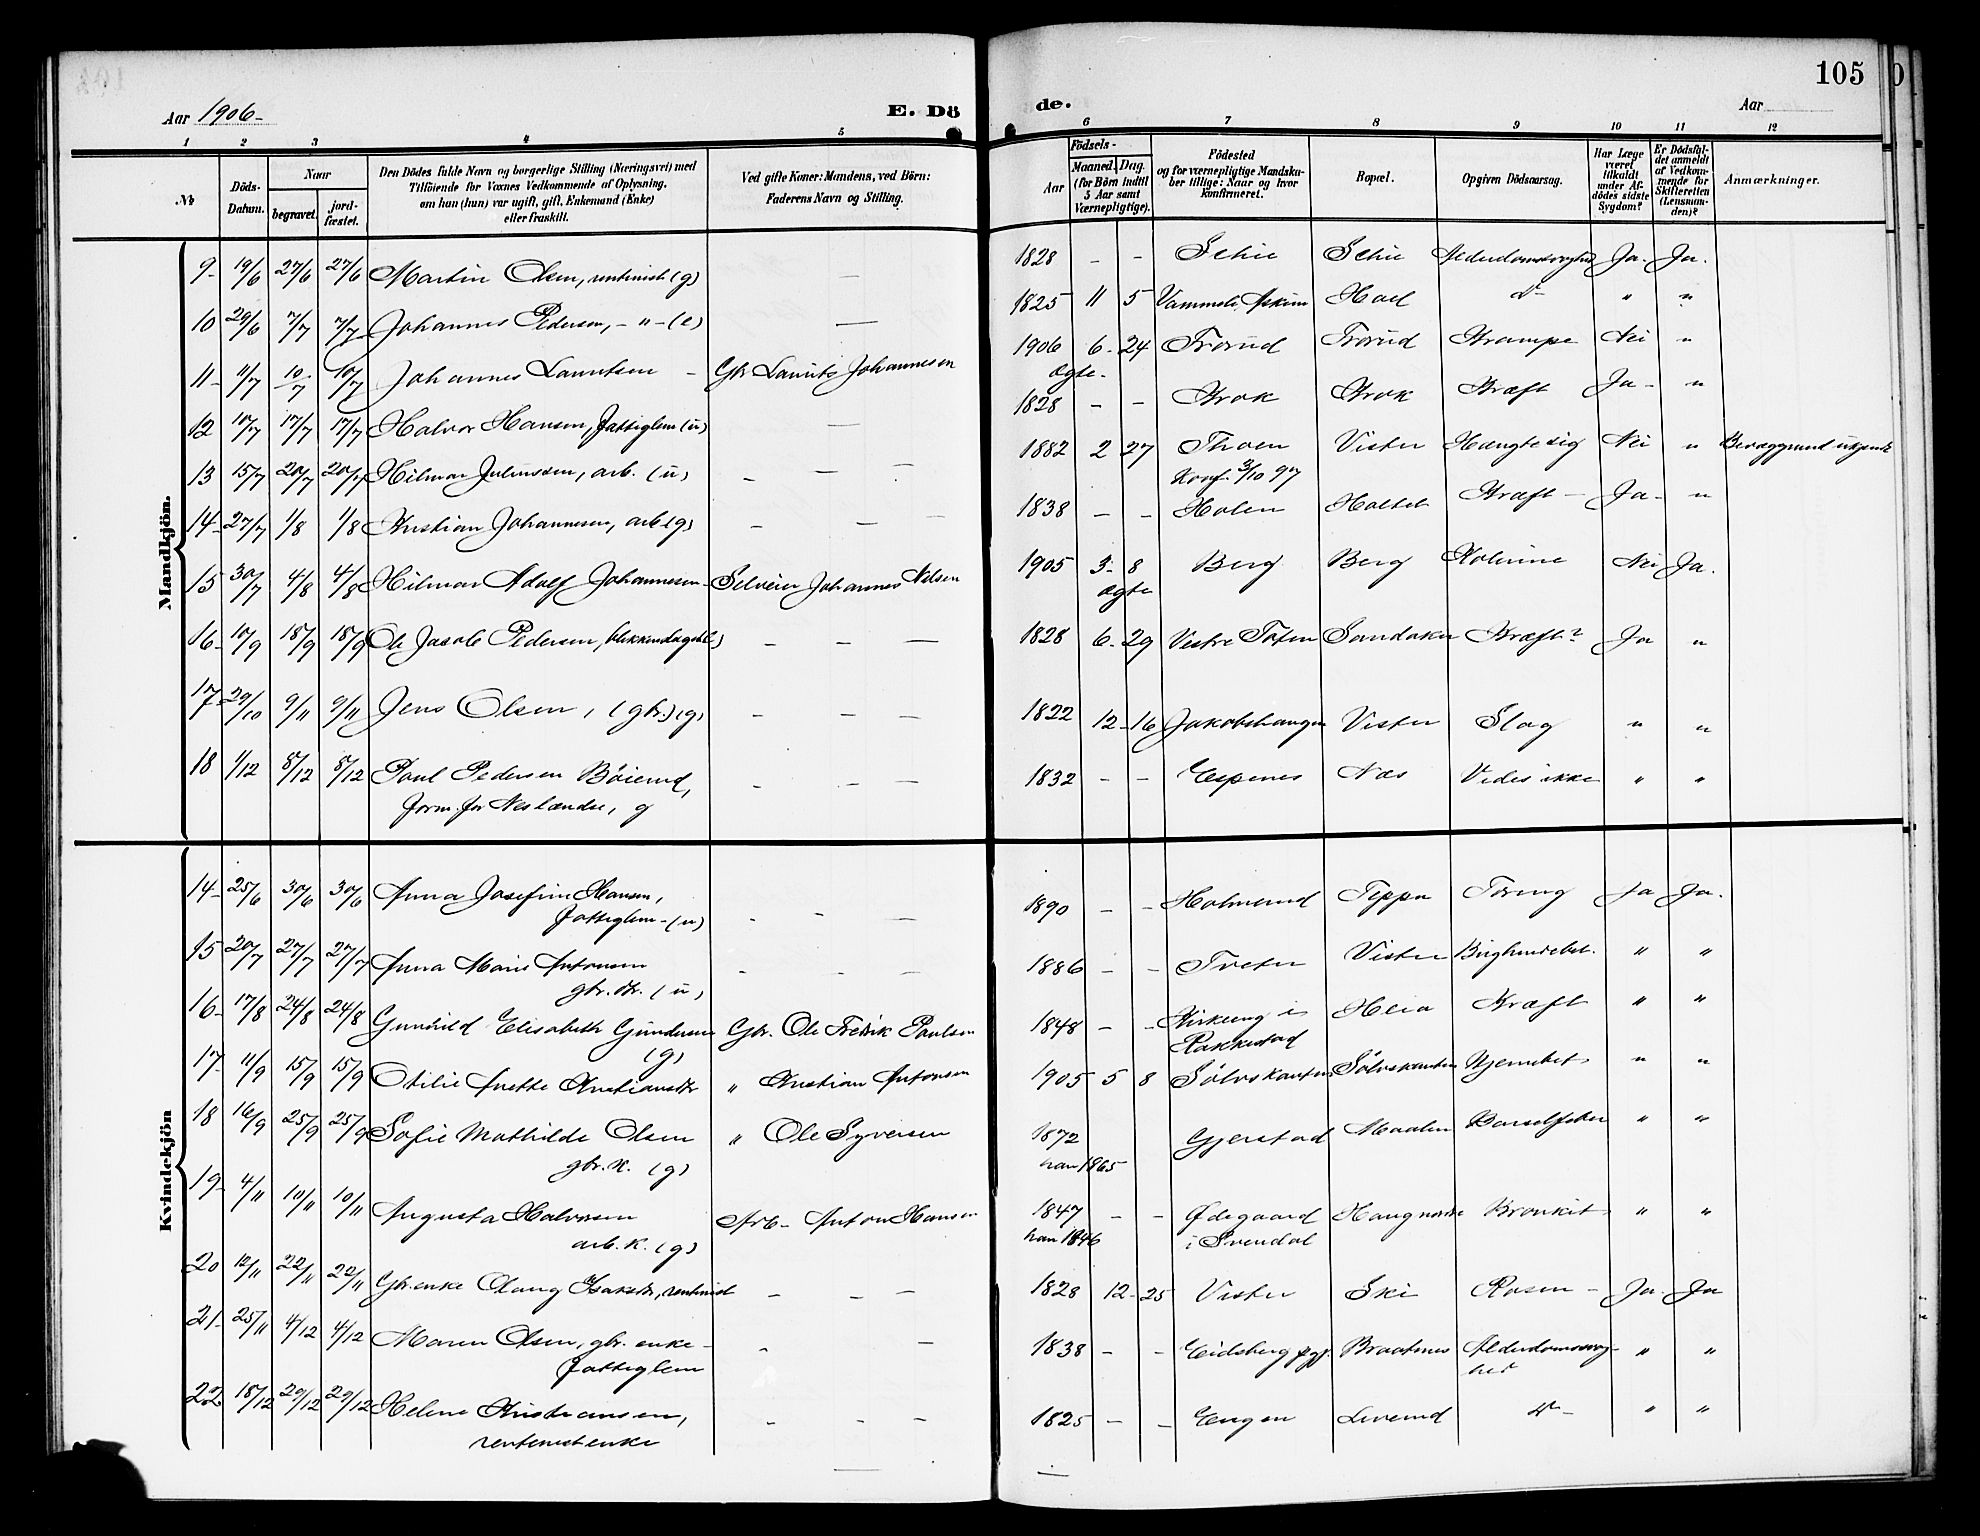 105
Aar 1906-
E. Dö
de.
Aar
1 2 3 4 5
6 7 8 9 10 11 12
№
Döds-Datum.
Naar
begravet.
jord-fæstet.
Den Dödes fulde Navn og borgerlige Stilling (Næringsvei) med
Tilföiende for Voxnes Vedkommende af Oplysning,
om han (hun) var ugift, gift, Enkemand (Enke)
eller fraskilt.
Ved gifte Koner: Mandens, ved Börn:
Faderens Navn og Stilling.
Födsels-
Aar
Maaned. Dag.
(for Börn indtil
5 Aar samt
Værnepligtige).
Födested
og for værnepligtige Mandska-
ber tillige: Naar og hvor
konfirmeret.
Bopæl.
Opgiven Dödsaarsag.
Har Læge
været
tilkaldt
under Af-
dödes sidste
Sygdom?
Er Dödsfal-
det anmeldt
af Vedkom-
mende for
Skifteretten
(Lensman-
den)?
Anmærkninger.
Mandkjön.
9- 19/6 27/6 27/6 Martin Olsen, rentenist (g) — 1828 - - Schie Schie Alderdomssvaghed Ja- Ja.
10 29/6 7/7 7/7 Johannes Pedersen, - " - (e) — 1825 11 5 Vammeli, Askim Hoel do- " "
11- 11/7 10/7 10/7 Johannes Lauritsen - Gbr Laurits Johannesen 1906 6- 24 Trörud Trörud Krampe Nei "
ægte-
12 10/7 17/7 17/7 Halvor Hansen, fattiglem (u) — 1828 - - Krok Krok Kræft Ja- "
13 15/7 20/7 20/7 Hilmar Juliussen, arb. (u) - — — 1882 2 27 Thoen Vister Hængte sig Nei " Bevæggrund ukjendt
Konf. 3/10 97
14- 27/7 1/8 1/8 Kristian Johannesen, arb (g) - — — 1838 - - Holen Holtet Kræft - Ja- "
15 30/7 4/8 4/8 Hilmar Adolf Johannesen- Selveier Johannes Nilsen 1905 3- 8 Berg Berg Kolerine Nei Ja.
ægte
16- 10/9 18/9 18/9 Ole Jacob Pedersen, blikkenslager (e) - - — 1828 6- 29 Vestre Toten Sandaker Kræft? Ja "
17 29/10 9/11 9/11 Jens Olsen, (gbr.) (g) - — — 1822 12- 16 Jakobshaugen Vister Slag " "
18 1/12 8/12 8/12 Paul Pedersen Böierud, - — — 1832 - - Espenes Nes Vides ikke " "
form. for Neslændre, g
Kvindekjön
14- 25/6 30/6 30/6 Anna Josefine Hansen, - - — 1890 - - Holmerud Teppa Tæring Ja Ja.
fattiglem- (u)
15 20/7 27/7 27/7 Anna Marie Antonsen - - — 1886 - - Tveter Vister " "
gbr. dtr. (u)
16- 17/8 24/8 24/8 Gunhild Elisabeth Gundersen Gbr. Ole Fredrik Paulsen 1848 - - Kirkeng i Heia Kræft " "
(g) Rakkestad
17- 11/9 15/9 15/9 Otilie Anette Kristiansdtr " Kristian Antonsen 1905 5 8 Sölvskanten Sölvskanten Hjernebet. " "
18 16/9 25/9 25/9 Sofie Mathilde Olsen " Ole Syversen 1872 Gjerstad Maalen Barselfeber " "
gbr. K. (g) han 1865
19- 4/11 10/11 10/11 Augusta Halvorsen Arb- Anton Hansen 1847 - - Ødegaard Haug nordre Bronkit " "
arb. K. (g) han 1846 i Svendal
20 12/11 22/11 22/11 Gbr.enke Olaug Isaksdtr, rentenist - - - 1828 12- 25 Vister Ski Rosen - Ja. Ja
21- 25/11 4/12 4/12 Maren Olsen, gbr. enke- - — 1838 - - Eidsberg pgj. Braatenes Alderdomssvag- " "
fattiglem hed
22. 18/12 29/12 29/12 Helene Kristiansen, - - - 1825 - - Engen Lererud do- " "
rentenist enke